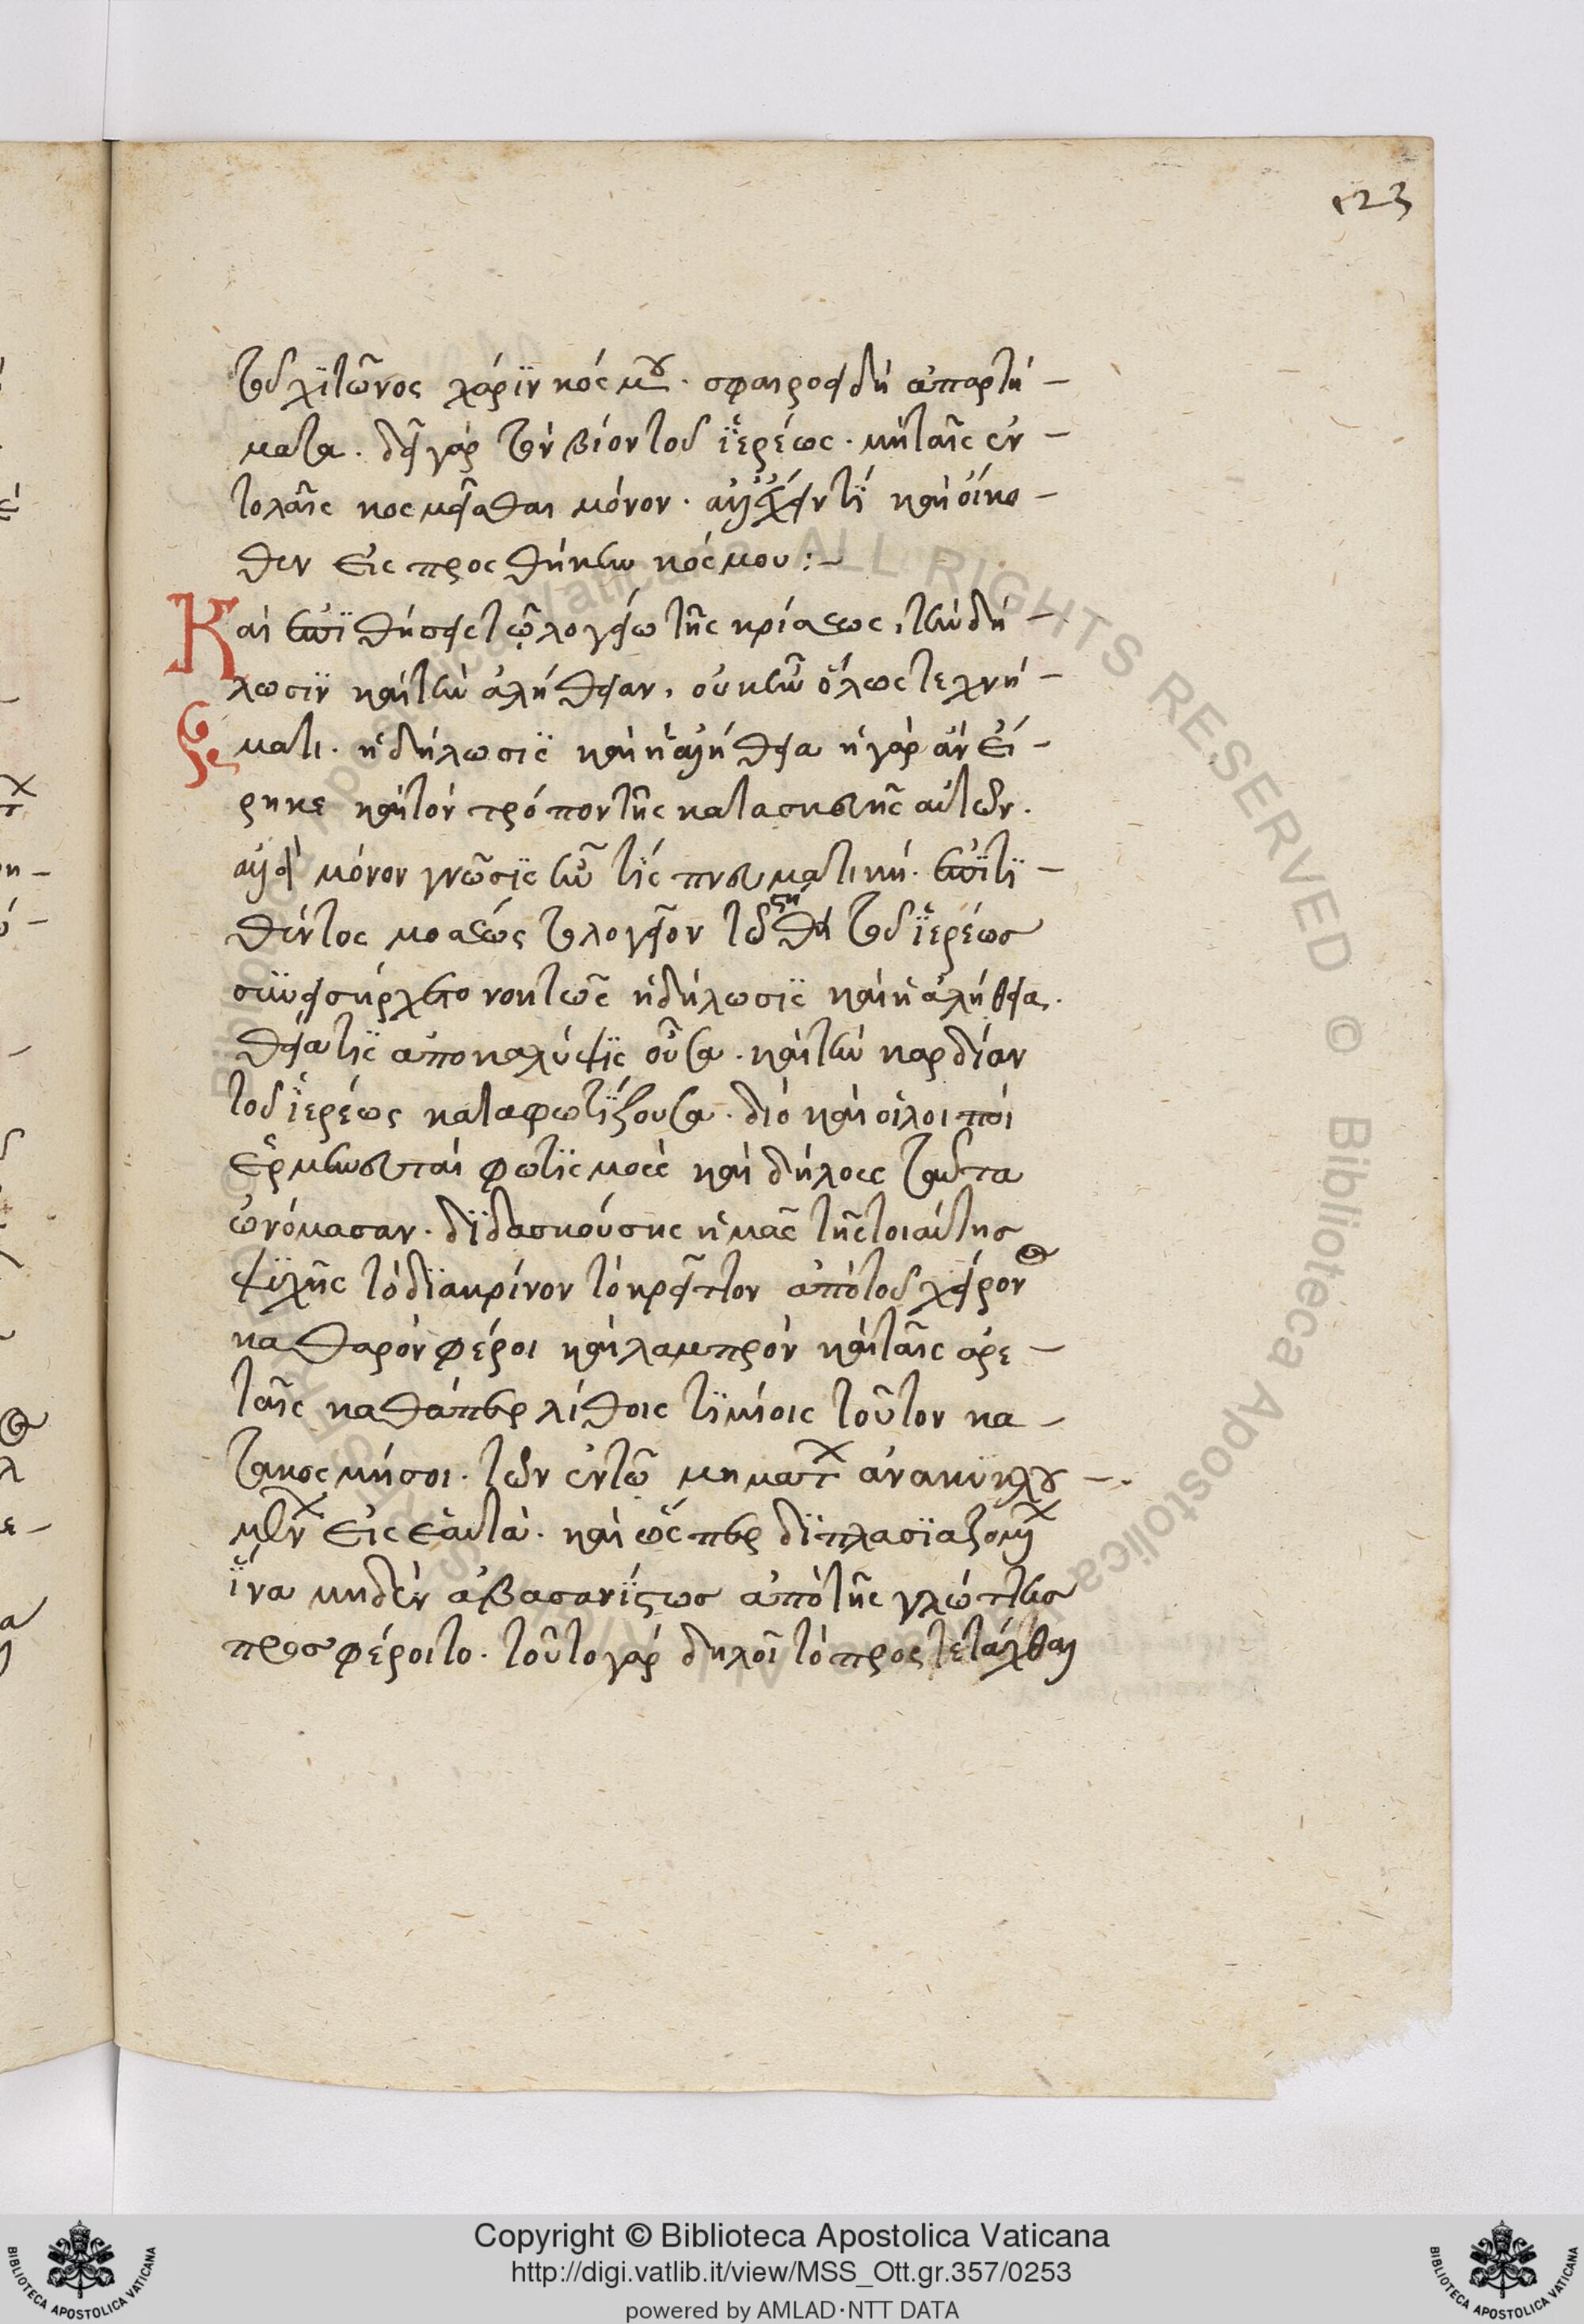 123
τοῦ χϊτῶνος χάρϊν κόσμου. σφαιροειδῆ ἀπαρτή-
ματα. δεῖ γὰρ τὸν βίον τοῦ ἱερέως. μὴ ταῖς ἐν-
τολαῖς κοσμεῖσθαι μόνον. ἀλλ' ἔχειν τϊ καὶ οἴκο-
θεν εἰς προσθήκην κόσμου:-
Καὶ ἐπϊθήσεις τῷ λογείω τῆς κρίσεως, τὴν δή-
λωσϊν καὶ τὴν ἀλήθειαν, οὐκ ἦν ὅλως τεχνή-
ματι. ἡ δήλωσϊς καὶ ἡ ἀλήθεια ἢ γὰρ ἂν εἴ-
ρηκε καὶ τὸν τρόπον τῆς κατασκευῆς αὐτῶν.
ἀλλὰ μόνον γνῶσϊς ἦν τϊς πνευματική. ἐπϊτϊ-
θέντος μοσέως τὸ λογεῖον τῶ στήθη τοῦ ἱερέως
συνεισήρχετο νοητῶς ἡ δήλωσϊς καὶ ἡ ἀλήθεια.
θεία τϊς ἀποκαλύψϊς οὖσα. καὶ τὴν καρδίαν
τοῦ ἱερέως καταφωτϊζουσα. διὸ καὶ οἱ λοιποὶ
ἑρμηνευταὶ φωτϊσμοὺς καὶ δήλους ταῦτα
ὠνόμασαν. δϊδασκούσης ἡμᾶς τῆς τοιαύτης
ψϋχῆς τὸ δϊακρίνον τὸ κρεῖττον ἀπὸ τοῦ χείρονος
καθαρὸν φέροι καὶ λαμπρὸν καὶ ταῖς ἀρε-
ταῖς καθάπερ λίθοις τϊμίοις τοῦτον κα-
τακοσμήσοι. τῶν ἐν τῶ μηματ ἀνακϋκλου-
μένων εἰς ἑαυτά. καὶ ὥσπερ δϊπλασϊαζομένων
ἵνα μηδὲν ἀβασανϊστως ἀπὸ τῆς γλώττης
προσφέροιτο. τοῦτο γὰρ δηλοῖ τὸ προστετάχθαι
Copyright © Biblioteca Apostolica Vaticana
http://digi.vatlib.it/view/MSS_Ott.gr.357/0253
powered by AMLAD·NTT DATA